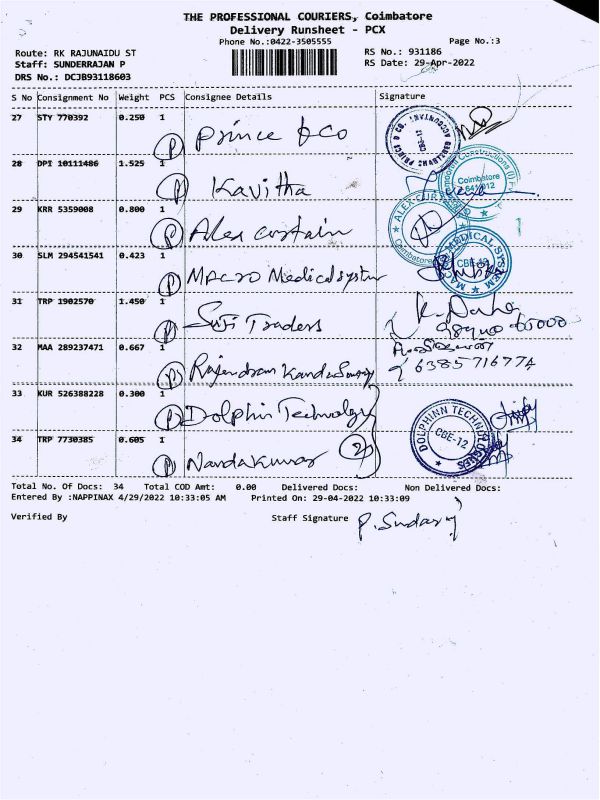 THE PROFESSIONAL COURIERS, Coimbatore
Delivery Runsheet - PCX
Phone No.:0422-3505555
Page No.:3
Route: RK RAJUNAIDU ST
RS No.: 931186
Staff: SUNDERRAJAN P
RS Date: 29-Apr-2022
DRS No.: DCJB93118603
S No Consignment No Weight PCS Consignee Details Signature
27 STY 770392 0.250 1 P Prince & Co
28 DPI 10111486 1.525 1 P Kavitha
Coimbatore
29 KRR 5359008 0.800 1 P Alex curtain
ALEX CURTAIN
Coimbatore
30 SLM 294541541 0.423 1 P MACRO Medical system
MACRO MEDICAL SYSTEM
CBE-12
31 TRP 1902570 1.450 1 P Suji Traders
32 MAA 289237471 0.667 1 P Rajendran
6385716774
33 KUR 526388228 0.300 1 P Dolphin Technology
DOLPHINN TECHNOLOGIES
CBE-12
34 TRP 7730385 0.605 1 P Nandakumar 2
Total No. Of Docs: 34 Total COD Amt: 0.00 Delivered Docs: Non Delivered Docs:
Entered By :NAPPINAX 4/29/2022 10:33:05 AM Printed On: 29-04-2022 10:33:09
Verified By Staff Signature P. Sudary